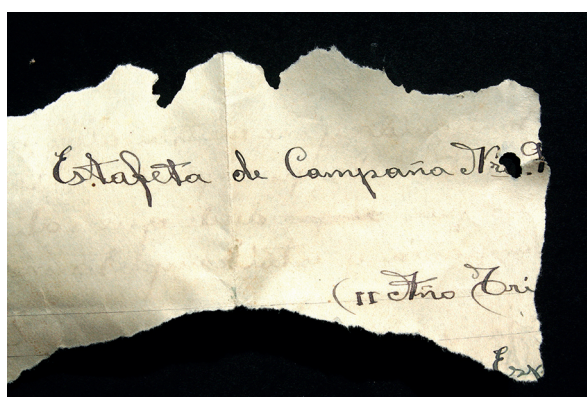 Estafeta de Campaña Nro. 9
(II Año Tri